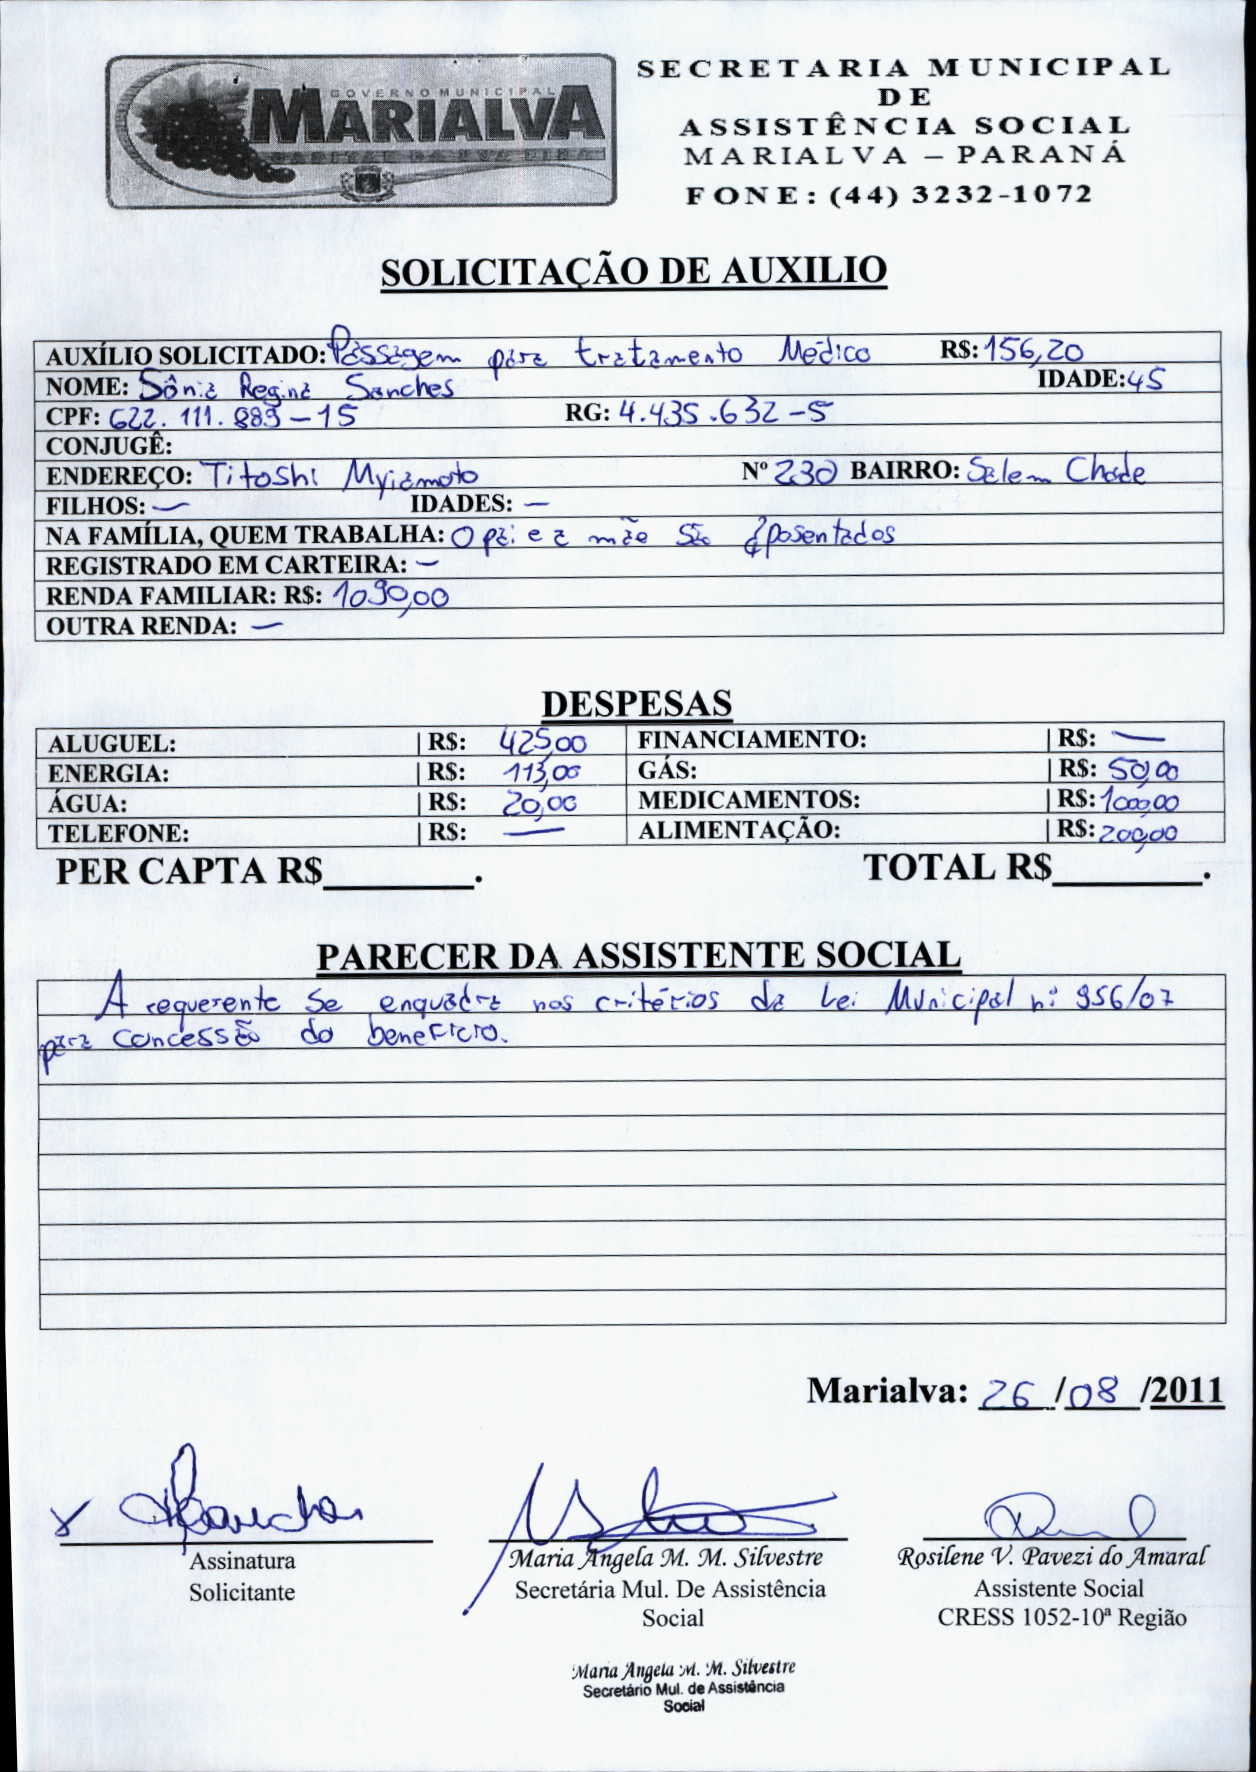 GOVERNO MUNICIPAL
MARIALVA
CAPITAL DA UVA FINA
SECRETARIA MUNICIPAL
DE
ASSISTÊNCIA SOCIAL
MARIALVA – PARANÁ
FONE: (44) 3232-1072
SOLICITAÇÃO DE AUXILIO
AUXÍLIO SOLICITADO: Passagem para tratamento Médico R$: 156,20
NOME: Sônia Regina Sanches IDADE: 45
CPF: 622.111.889-15 RG: 4.435.632-5
CONJUGÊ:
ENDEREÇO: Titoshi Myiamoto Nº 230 BAIRRO: Salem Chade
FILHOS: — IDADES: —
NA FAMÍLIA, QUEM TRABALHA: O pai e a mãe são aposentados
REGISTRADO EM CARTEIRA: —
RENDA FAMILIAR: R$: 1090,00
OUTRA RENDA: —
DESPESAS
ALUGUEL: | R$: 425,00 FINANCIAMENTO: | R$: —
ENERGIA: | R$: 113,00 GÁS: | R$: 50,00
ÁGUA: | R$: 20,00 MEDICAMENTOS: | R$: 1000,00
TELEFONE: | R$: — ALIMENTAÇÃO: | R$: 200,00
PER CAPTA R$________. TOTAL R$________.
PARECER DA ASSISTENTE SOCIAL
A requerente se enquadra nos critérios da Lei Municipal nº 956/07
para concessão do benefício.
Marialva: 26 /08 /2011
Assinatura
Solicitante
Maria Ângela M. M. Silvestre
Secretária Mul. De Assistência
Social
Rosilene V. Pavezi do Amaral
Assistente Social
CRESS 1052-10ª Região
Maria Ângela M. M. Silvestre
Secretário Mul. de Assistência
Social